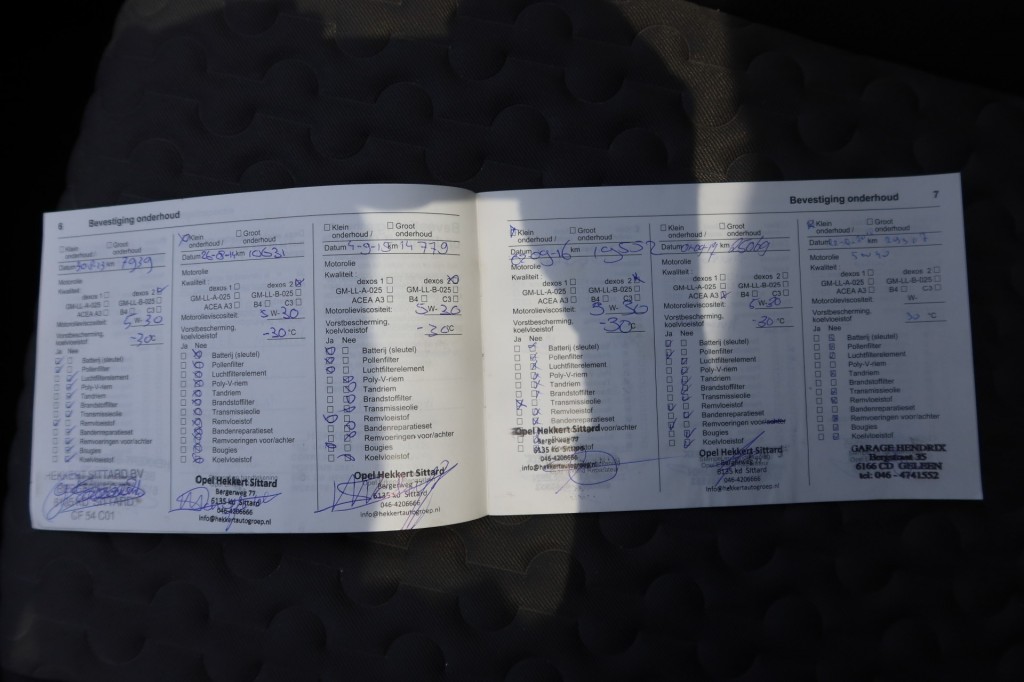 6 Bevestiging onderhoud
Klein onderhoud / Groot onderhoud
Datum km 7979
Motorolie
Kwaliteit
dexos 1 dexos 2
GM-LL-A-025 GM-LL-B-025
ACEA A3 B4 C3
Motorolieviscositeit: 5W-30
Vorstbescherming, koelvloeistof -30°C
Ja Nee
Batterij (sleutel)
Pollenfilter
Luchtfilterelement
Poly-V-riem
Tandriem
Brandstoffilter
Transmissieolie
Remvloeistof
Bandenreparatieset
Remvoeringen voor/achter
Bougies
Koelvloeistof
HEKKERT SITTARD BV
Klein onderhoud / Groot onderhoud
Datum 26-8-14 km 10531
Motorolie
Kwaliteit
dexos 1 dexos 2
GM-LL-A-025 GM-LL-B-025
ACEA A3 B4 C3
Motorolieviscositeit: 5W-30
Vorstbescherming, koelvloeistof -30°C
Ja Nee
Batterij (sleutel)
Pollenfilter
Luchtfilterelement
Poly-V-riem
Tandriem
Brandstoffilter
Transmissieolie
Remvloeistof
Bandenreparatieset
Remvoeringen voor/achter
Bougies
Koelvloeistof
Opel Hekkert Sittard
Bergerweg 77
6135 kd Sittard
046-4206666
info@hekkertautogroep.nl
Klein onderhoud / Groot onderhoud
Datum km 14779
Motorolie
Kwaliteit
dexos 1 dexos 2
GM-LL-A-025 GM-LL-B-025
ACEA A3 B4 C3
Motorolieviscositeit: 5W-30
Vorstbescherming, koelvloeistof -30°C
Ja Nee
Batterij (sleutel)
Pollenfilter
Luchtfilterelement
Poly-V-riem
Tandriem
Brandstoffilter
Transmissieolie
Remvloeistof
Bandenreparatieset
Remvoeringen voor/achter
Bougies
Koelvloeistof
Opel Hekkert Sittard
Bergerweg 77
6135 kd Sittard
046-4206666
info@hekkertautogroep.nl
Bevestiging onderhoud 7
Klein onderhoud / Groot onderhoud
Datum km 19552
Motorolie
Kwaliteit
dexos 1 dexos 2
GM-LL-A-025 GM-LL-B-025
ACEA A3 B4 C3
Motorolieviscositeit: 5W-30
Vorstbescherming, koelvloeistof -30°C
Ja Nee
Batterij (sleutel)
Pollenfilter
Luchtfilterelement
Poly-V-riem
Tandriem
Brandstoffilter
Transmissieolie
Remvloeistof
Bandenreparatieset
Remvoeringen voor/achter
Opel Hekkert Sittard
Bergerweg 77
6135 kd Sittard
046-4206666
info@hekkertautogroep.nl
Klein onderhoud / Groot onderhoud
Datum km
Motorolie
Kwaliteit
dexos 1 dexos 2
GM-LL-A-025 GM-LL-B-025
ACEA A3 B4 C3
Motorolieviscositeit: 5W-30
Vorstbescherming, koelvloeistof -30°C
Ja Nee
Batterij (sleutel)
Pollenfilter
Luchtfilterelement
Poly-V-riem
Tandriem
Brandstoffilter
Transmissieolie
Remvloeistof
Bandenreparatieset
Remvoeringen voor/achter
Bougies
Koelvloeistof
Opel Hekkert Sittard
Bergerweg 77
6135 kd Sittard
046-4206666
info@hekkertautogroep.nl
Klein onderhoud / Groot onderhoud
Datum km
Motorolie
Kwaliteit
dexos 1 dexos 2
GM-LL-A-025 GM-LL-B-025
ACEA A3 B4 C3
Motorolieviscositeit: W-
Vorstbescherming, koelvloeistof 30 °C
Ja Nee
Batterij (sleutel)
Pollenfilter
Luchtfilterelement
Poly-V-riem
Tandriem
Brandstoffilter
Transmissieolie
Remvloeistof
Bandenreparatieset
Remvoeringen voor/achter
Bougies
Koelvloeistof
GARAGE HENDRIX
Bergstraat 35
6166 CD GELEEN
tel: 046 - 4741552